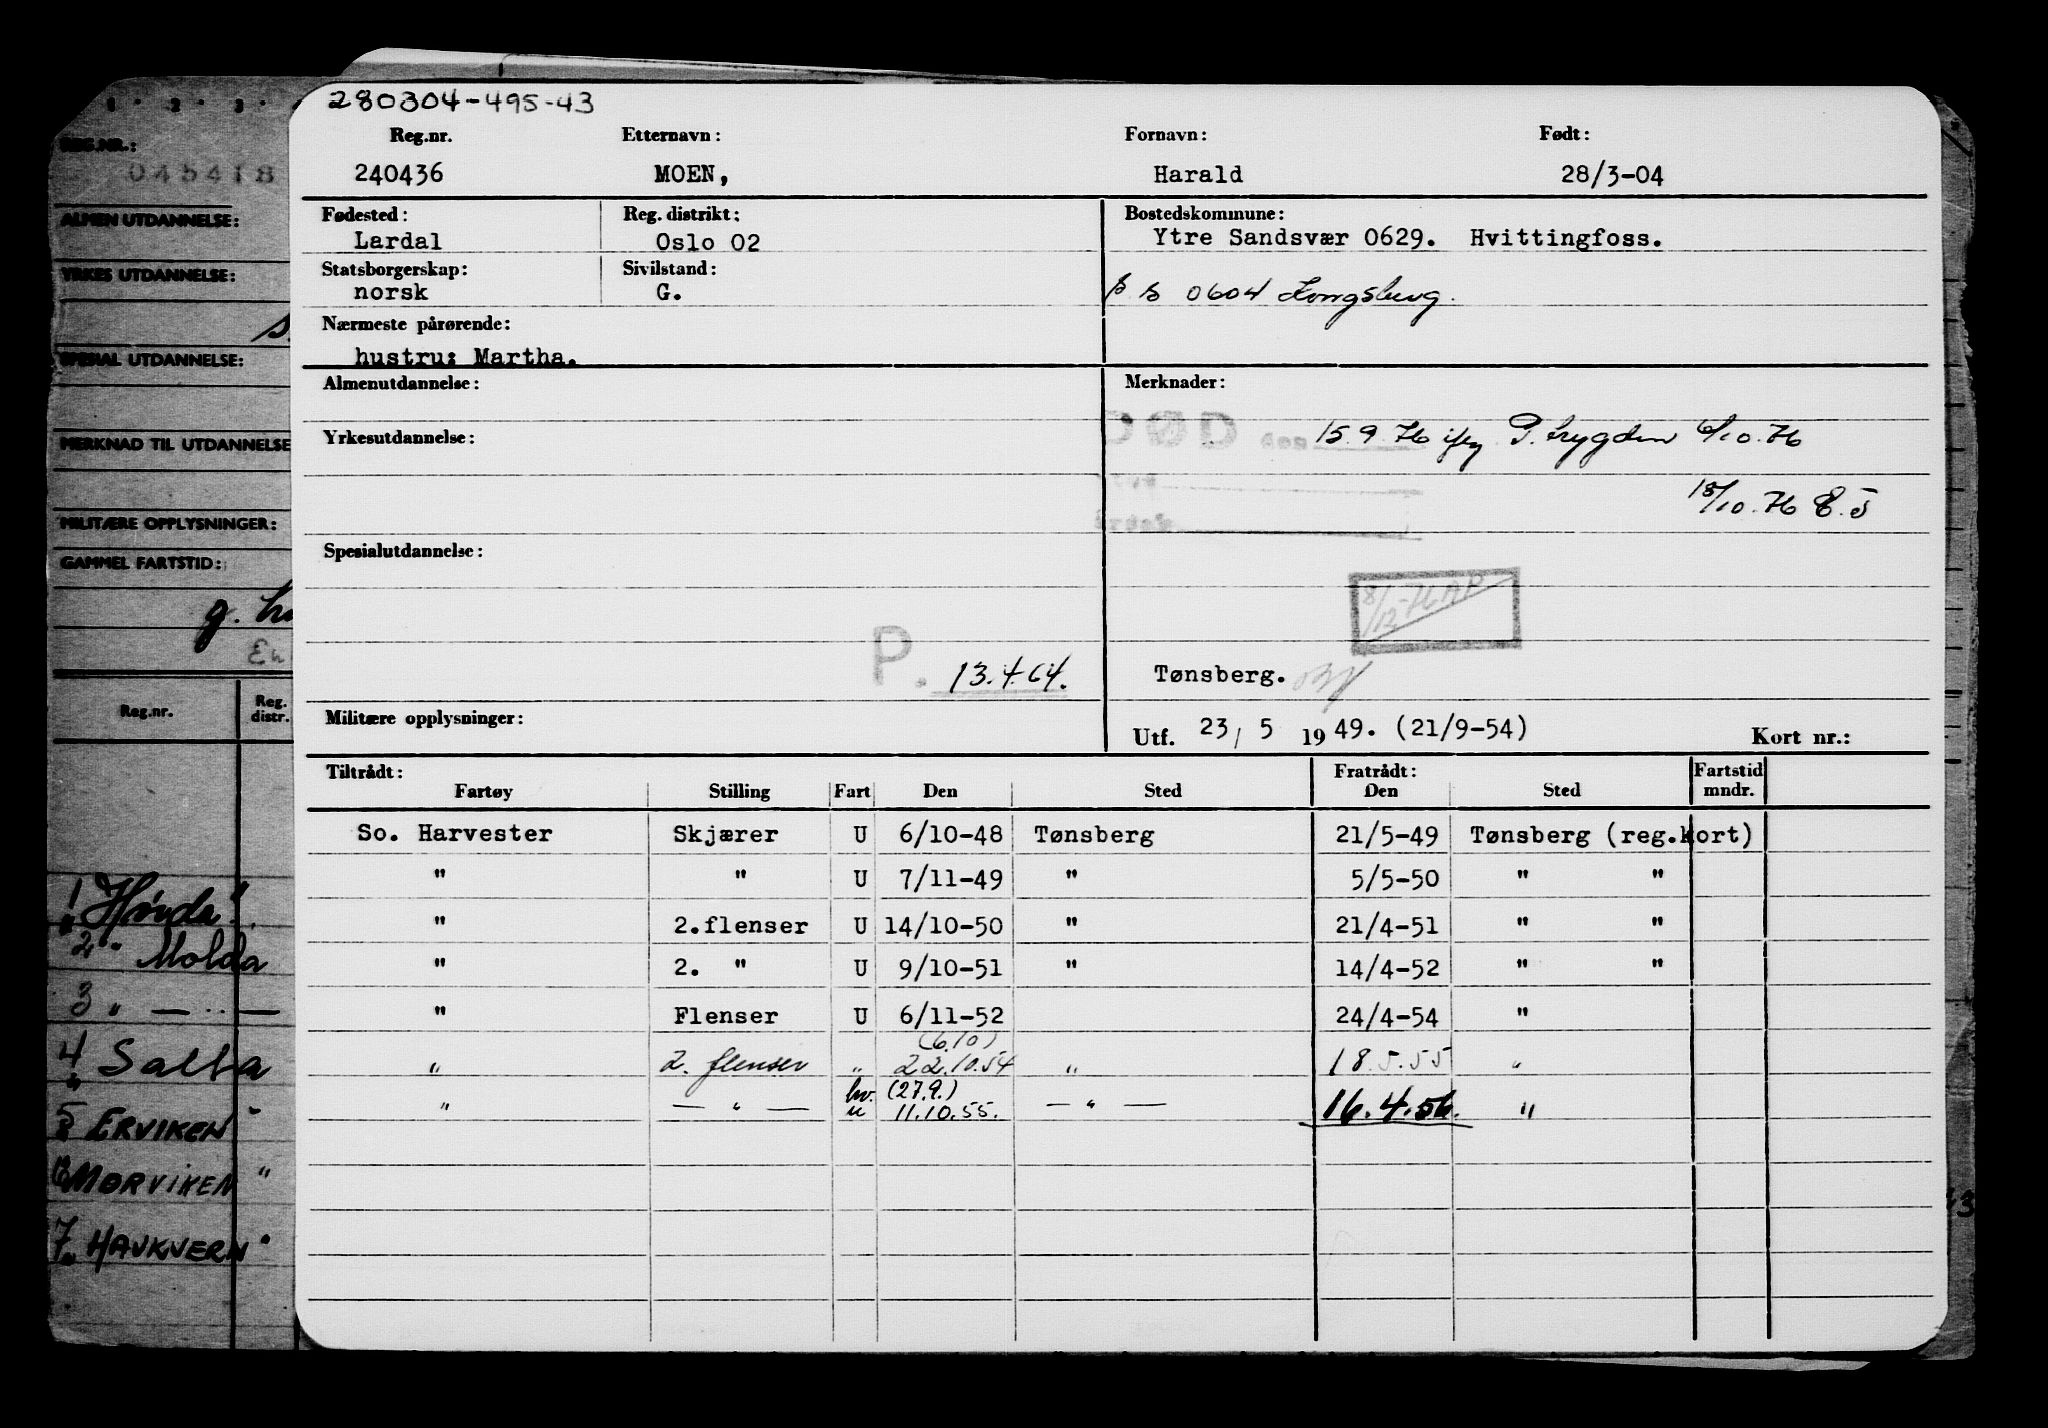 280304-495-43
Reg.nr. Etternavn: Fornavn: Født:
240436 MOEN, Harald 28/3-04
Fødested: Reg. distrikt: Bostedskommune:
Lardal Oslo 02 Ytre Sandsvær 0629. Hvittingfoss.
Statsborgerskap: Sivilstand:
norsk G. 0604 Kongsberg.
Nærmeste pårørende:
hustru: Martha.
Almenutdannelse: Merknader:
DØD den 15.9.76 P. trygden 6/10.76
Yrkesutdannelse:
18/10.76 E.J
Spesialutdannelse:
8/12-76 AP
P. 13.4.64. Tønsberg.
Militære opplysninger: Utf. 23/ 5 1949. (21/9-54) Kort nr.:
Tiltrådt: Fratrådt: Fartstid
Fartøy Stilling Fart Den Sted Den Sted mndr.
So. Harvester Skjærer U 6/10-48 Tønsberg 21/5-49 Tønsberg (reg.kort)
" " U 7/11-49 " 5/5-50 " "
" 2.flenser U 14/10-50 " 21/4-51 " "
" 2. " U 9/10-51 " 14/4-52 " "
" Flenser U 6/11-52 24/4-54 "
(6.10)
" 2. flenser " 22.10.54 " 18.5.55 "
hv. (27.9.)
" — " — u 11.10.55. — " — 16.4.56. "
REG.NR.:
045418
ALMEN UTDANNELSE:
YRKES UTDANNELSE:
SPESIAL UTDANNELSE:
MERKNAD TIL UTDANNELSE
MILITÆRE OPPLYSNINGER:
GAMMEL FARTSTID:
g.
Reg.nr. Reg. distr.
1 "Hörda"
2 " Molda
3 " — " —
4 " Salta
5 " ERVIKEN "
6 MORVIKEN "
7 " HAVKVERN "